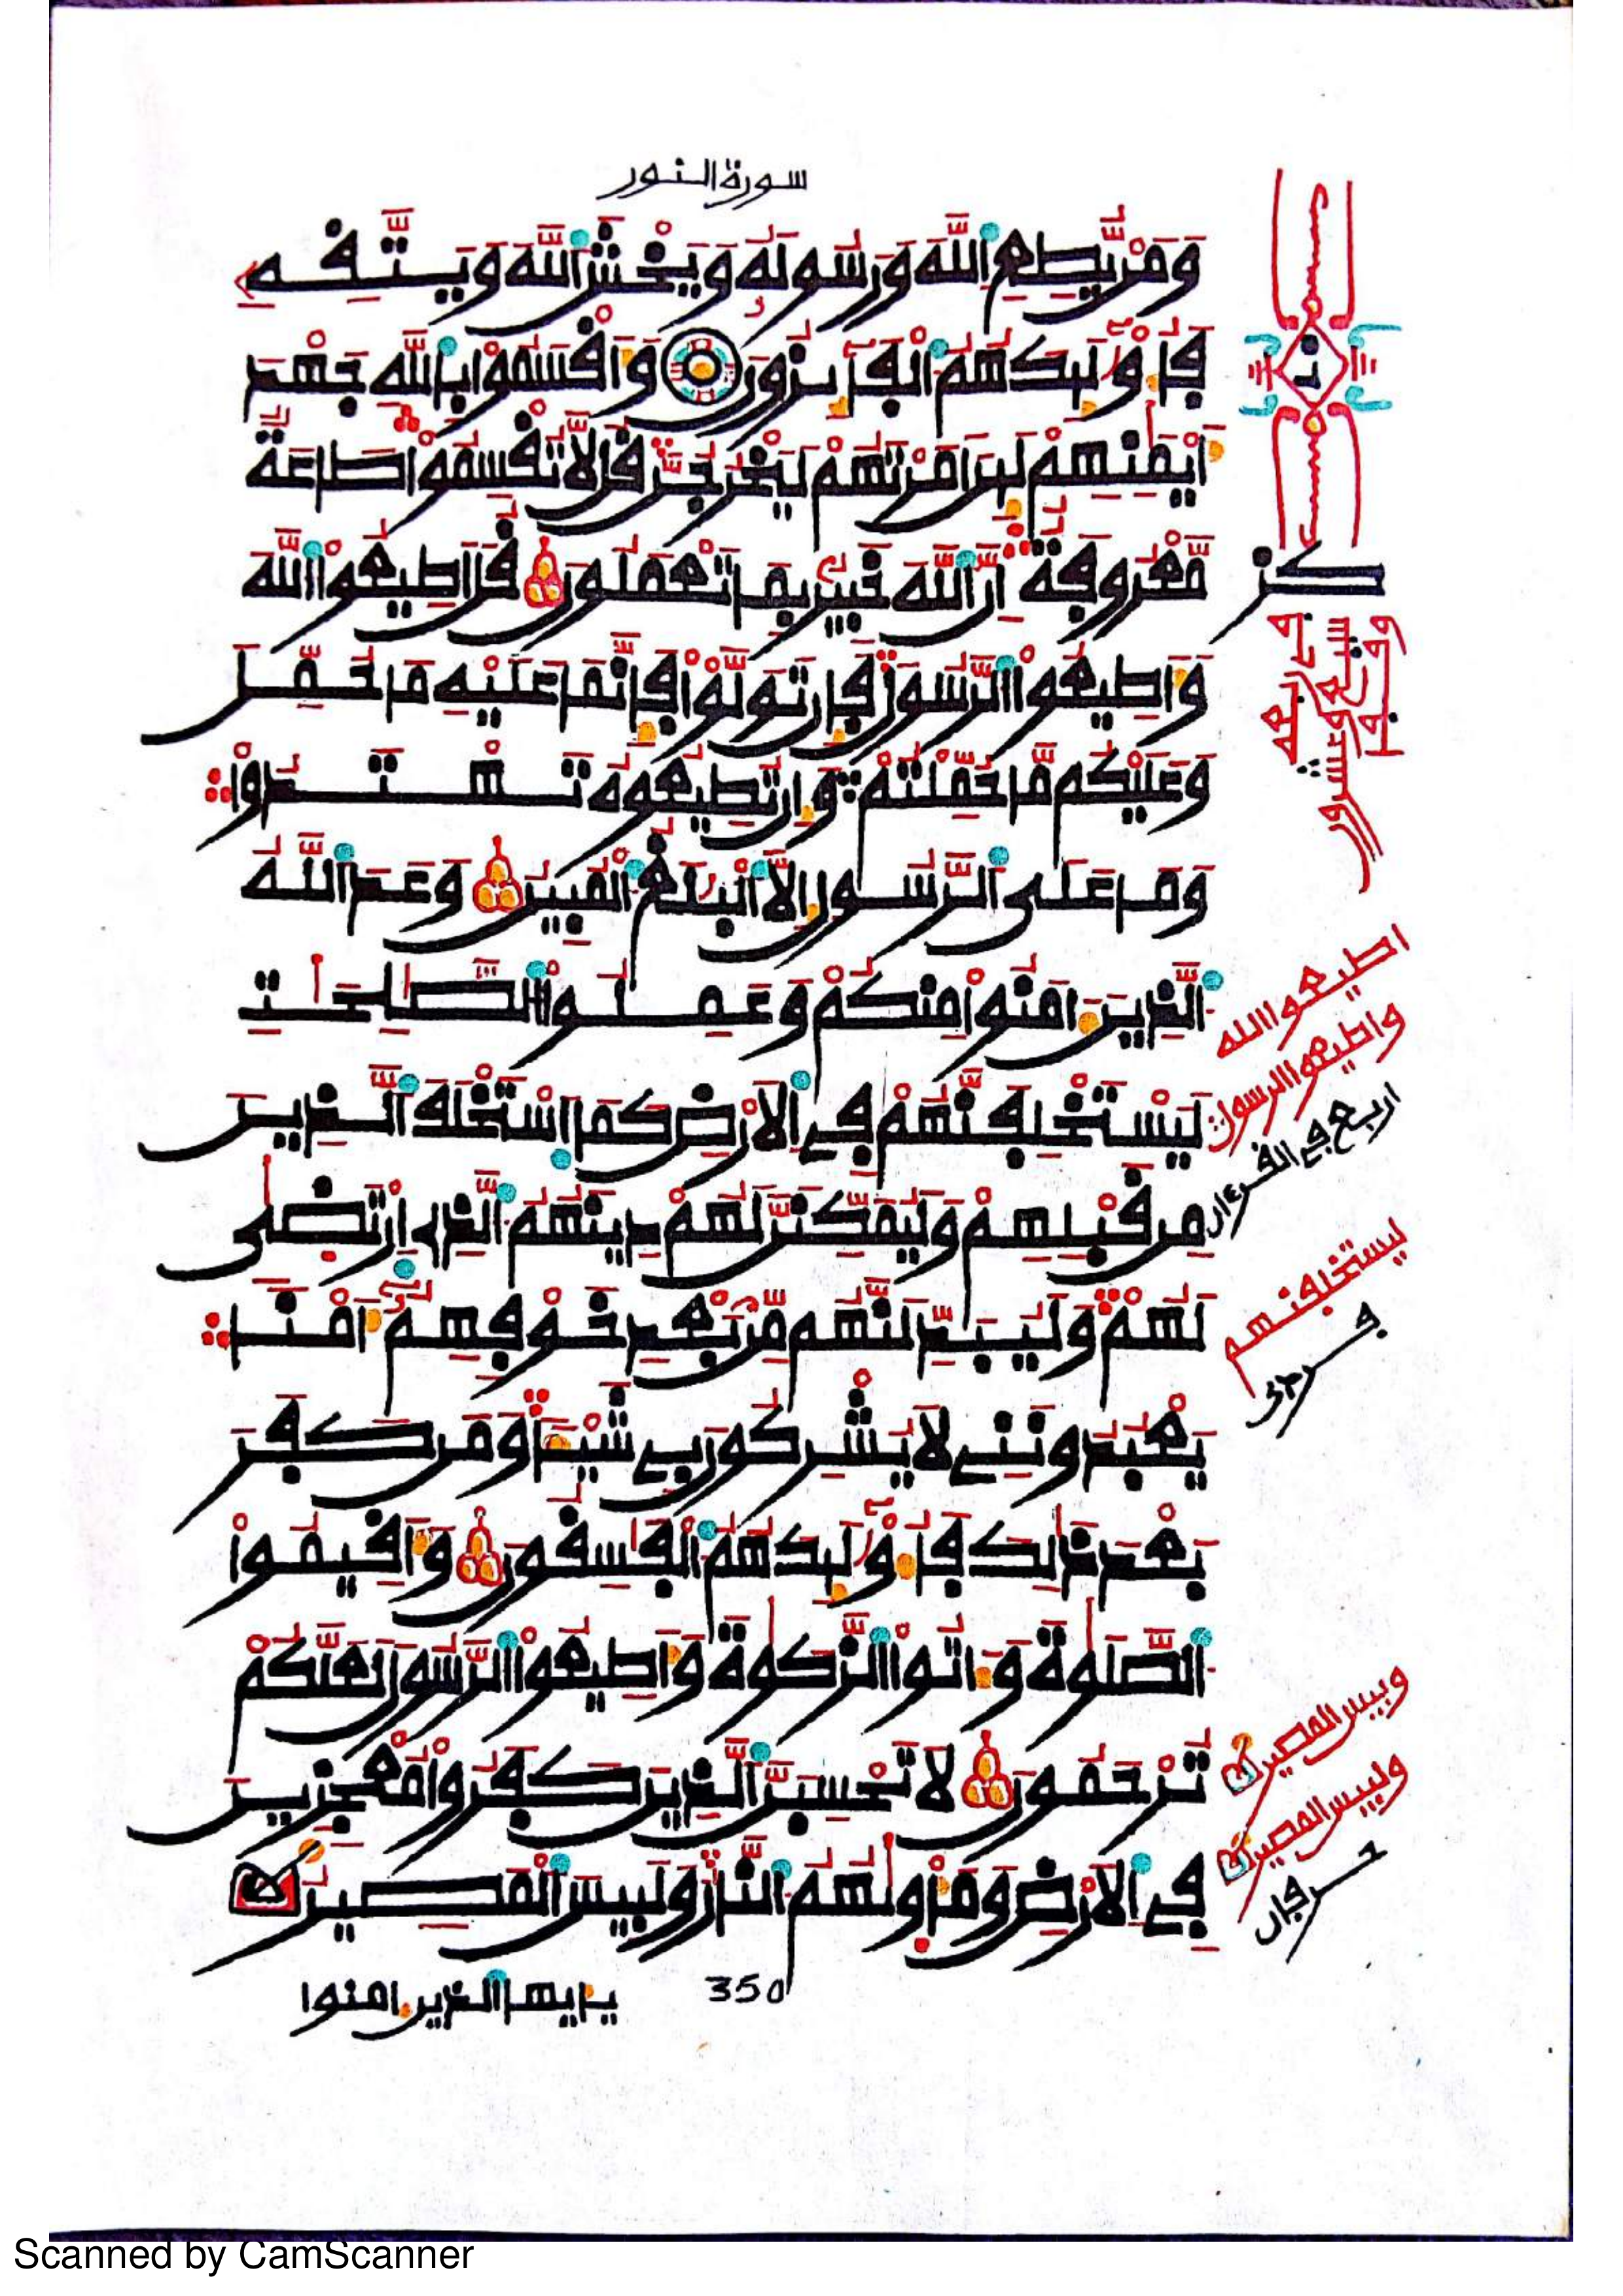 سورة النور
وَمَنْ يُّطِعِ اِ۬للَّهَ وَرَسُولَهُۥ وَيَخْشَ اَ۬للَّهَ وَيَتَّقِهِ
فَأُوْلَٰٓئِكَ هُمُ اُ۬لْفَآئِزُونَ وَأَقْسَمُواْ بِاللَّهِ جَهْدَ
أَيْمَٰنِهِمْ لَئِنَ اَمَرْتَهُمْ لَيَخْرُجُنَّ قُل لَّا تُقْسِمُواْ طَاعَةٌ
مَّعْرُوفَةٌ اِنَّ اَ۬للَّهَ خَبِيرُۢ بِمَا تَعْمَلُونَ قُلَ اَطِيعُواْ اُ۬للَّهَ
وَأَطِيعُواْ اُ۬لرَّسُولَ فَإِن تَوَلَّوْاْ فَإِنَّمَا عَلَيْهِ مَا حُمِّلَ
وَعَلَيْكُم مَّا حُمِّلْتُمْ وَإِن تُطِيعُوهُ تَهْتَدُواْ
وَمَا عَلَى اَ۬لرَّسُولِ إِلَّا اَ۬لْبَلَٰغُ اُ۬لْمُبِينُ وَعَدَ اَ۬للَّهُ
اُ۬لذِينَ ءَامَنُواْ مِنكُمْ وَعَمِلُواْ اُ۬لصَّٰلِحَٰتِ
لَيَسْتَخْلِفَنَّهُمْ فِے اِ۬لَارْضِ كَمَا اَ۪سْتَخْلَفَ اَ۬لذِينَ
مِن قَبْلِهِمْ وَلَيُمَكِّنَنَّ لَهُمْ دِينَهُمُ اُ۬لذِے اِ۪رْتَضَىٰ
لَهُمْ وَلَيُبَدِّلَنَّهُم مِّنۢ بَعْدِ خَوْفِهِمُۥٓ أَمْناً
يَعْبُدُونَنِے لَا يُشْرِكُونَ بِے شَيْـٔاً وَمَن كَفَرَ
بَعْدَ ذَٰلِكَ فَأُوْلَٰٓئِكَ هُمُ اُ۬لْفَٰسِقُونَ وَأَقِيمُواْ
اُ۬لصَّلَوٰةَ وَءَاتُواْ اُ۬لزَّكَوٰةَ وَأَطِيعُواْ اُ۬لرَّسُولَ لَعَلَّكُمْ
تُرْحَمُونَ لَا تَحْسِبَنَّ اَ۬لذِينَ كَفَرُواْ مُعْجِزِينَ
فِے اِ۬لَارْضِ وَمَأْوَىٰهُمُ اُ۬لنَّارُ وَلَبِيسَ اَ۬لْمَصِيرُ
350
يـأيها الذين ءامنوا
ن
اطيعوا الله
واطيعوا الرسول
اربع في القرءان
ليستخلفنهم
وبيس المصير
ولبيس المصير
حرفان
Scanned by CamScanner